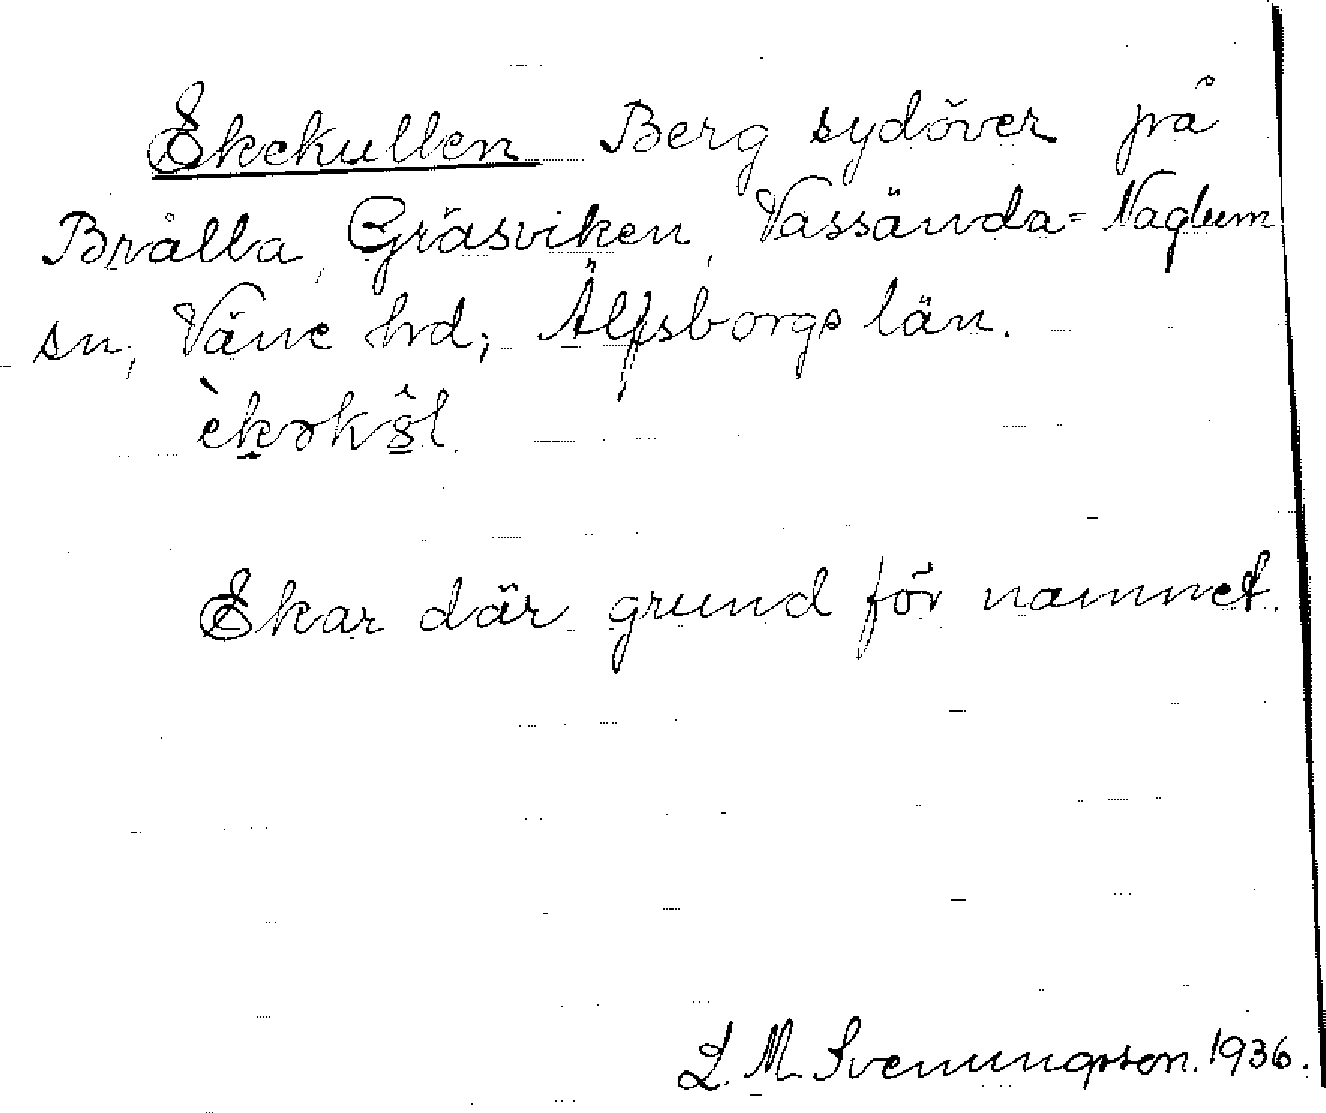 Ekekullen Berg sydöver på
Brålla, Gräsviken, Vassända-Naglum
sn, Väne hd, Älfsborgs län.
Ekar där grund för namnet.
L. M. Svenungsson. 1936.